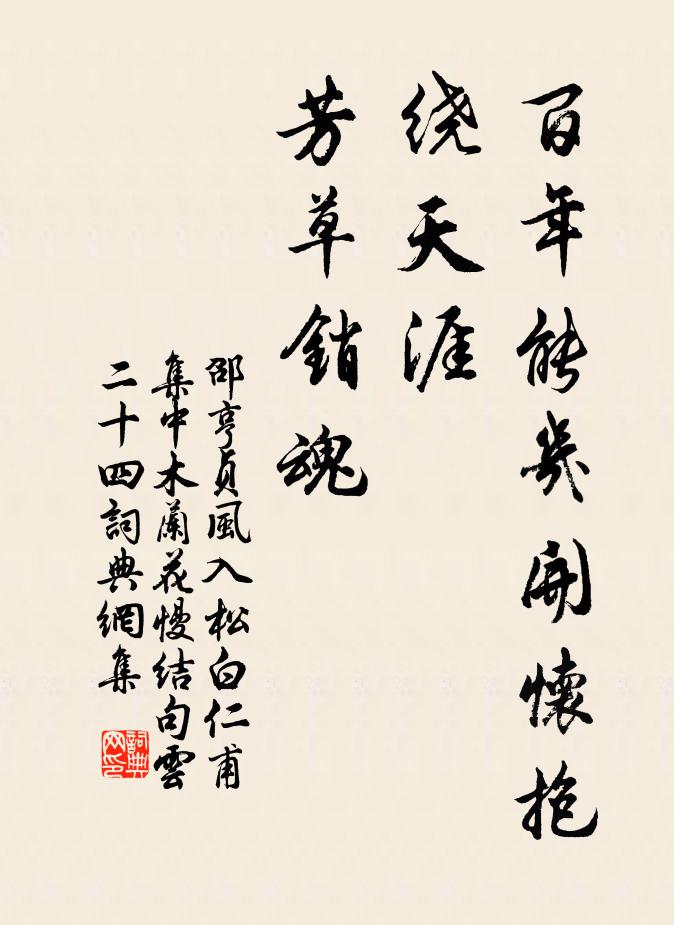 百年能幾開懷抱
绕天涯
芳草銷魂
邵亨貞風入松白仁甫
集中木蘭花慢結句雲
二十四詞典網集
詞典
网印